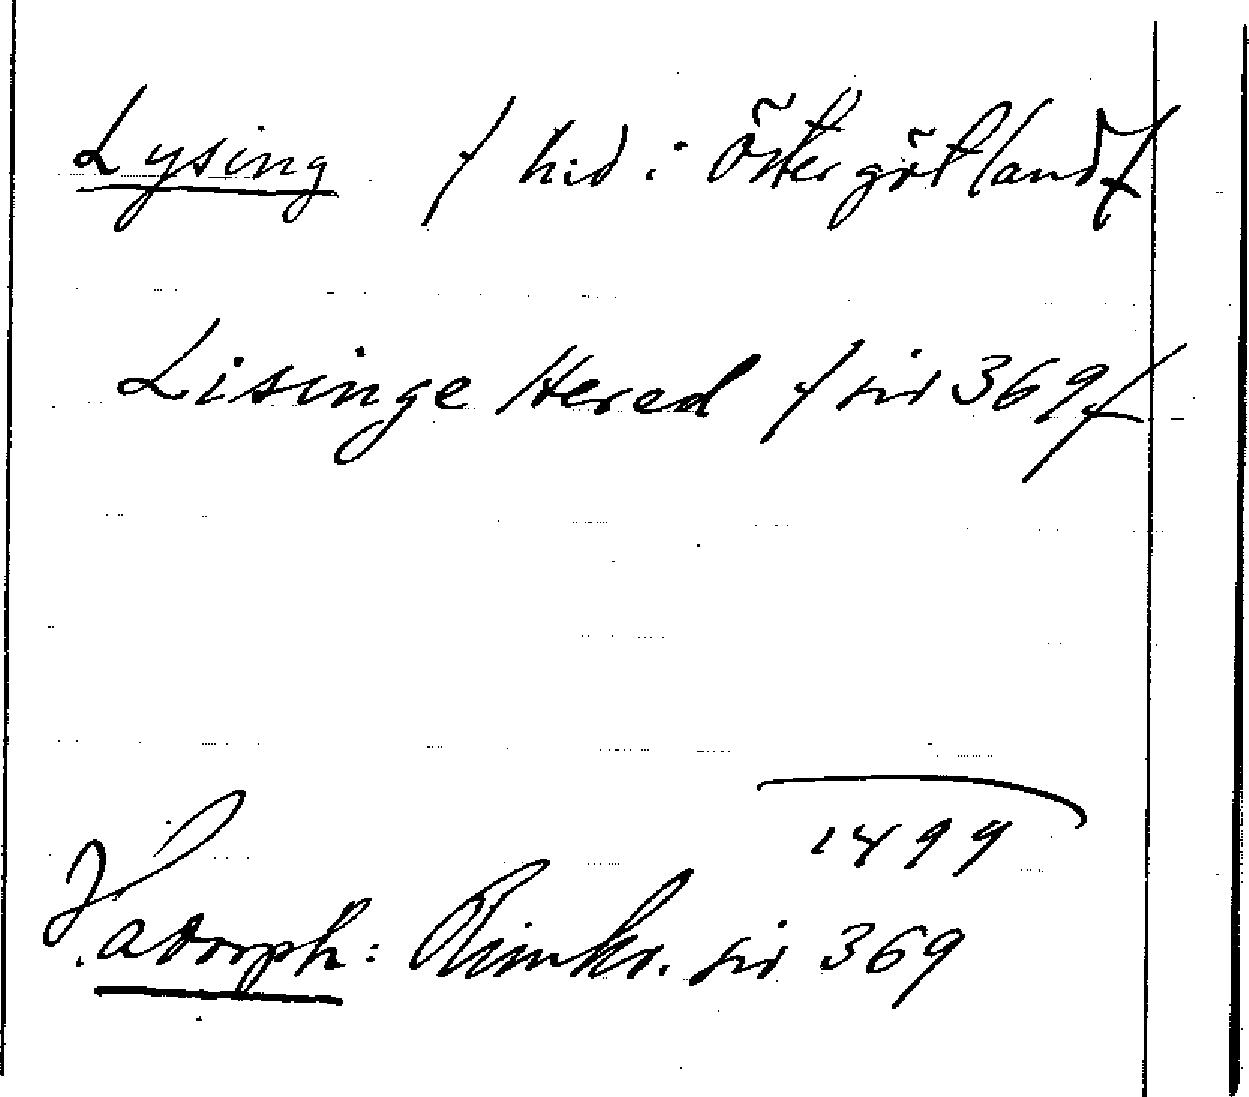 Lysing / hd i Östergötland /
Lisinge Hered / sid 369 /
1499
Hadorph: Rimkr. sid 369